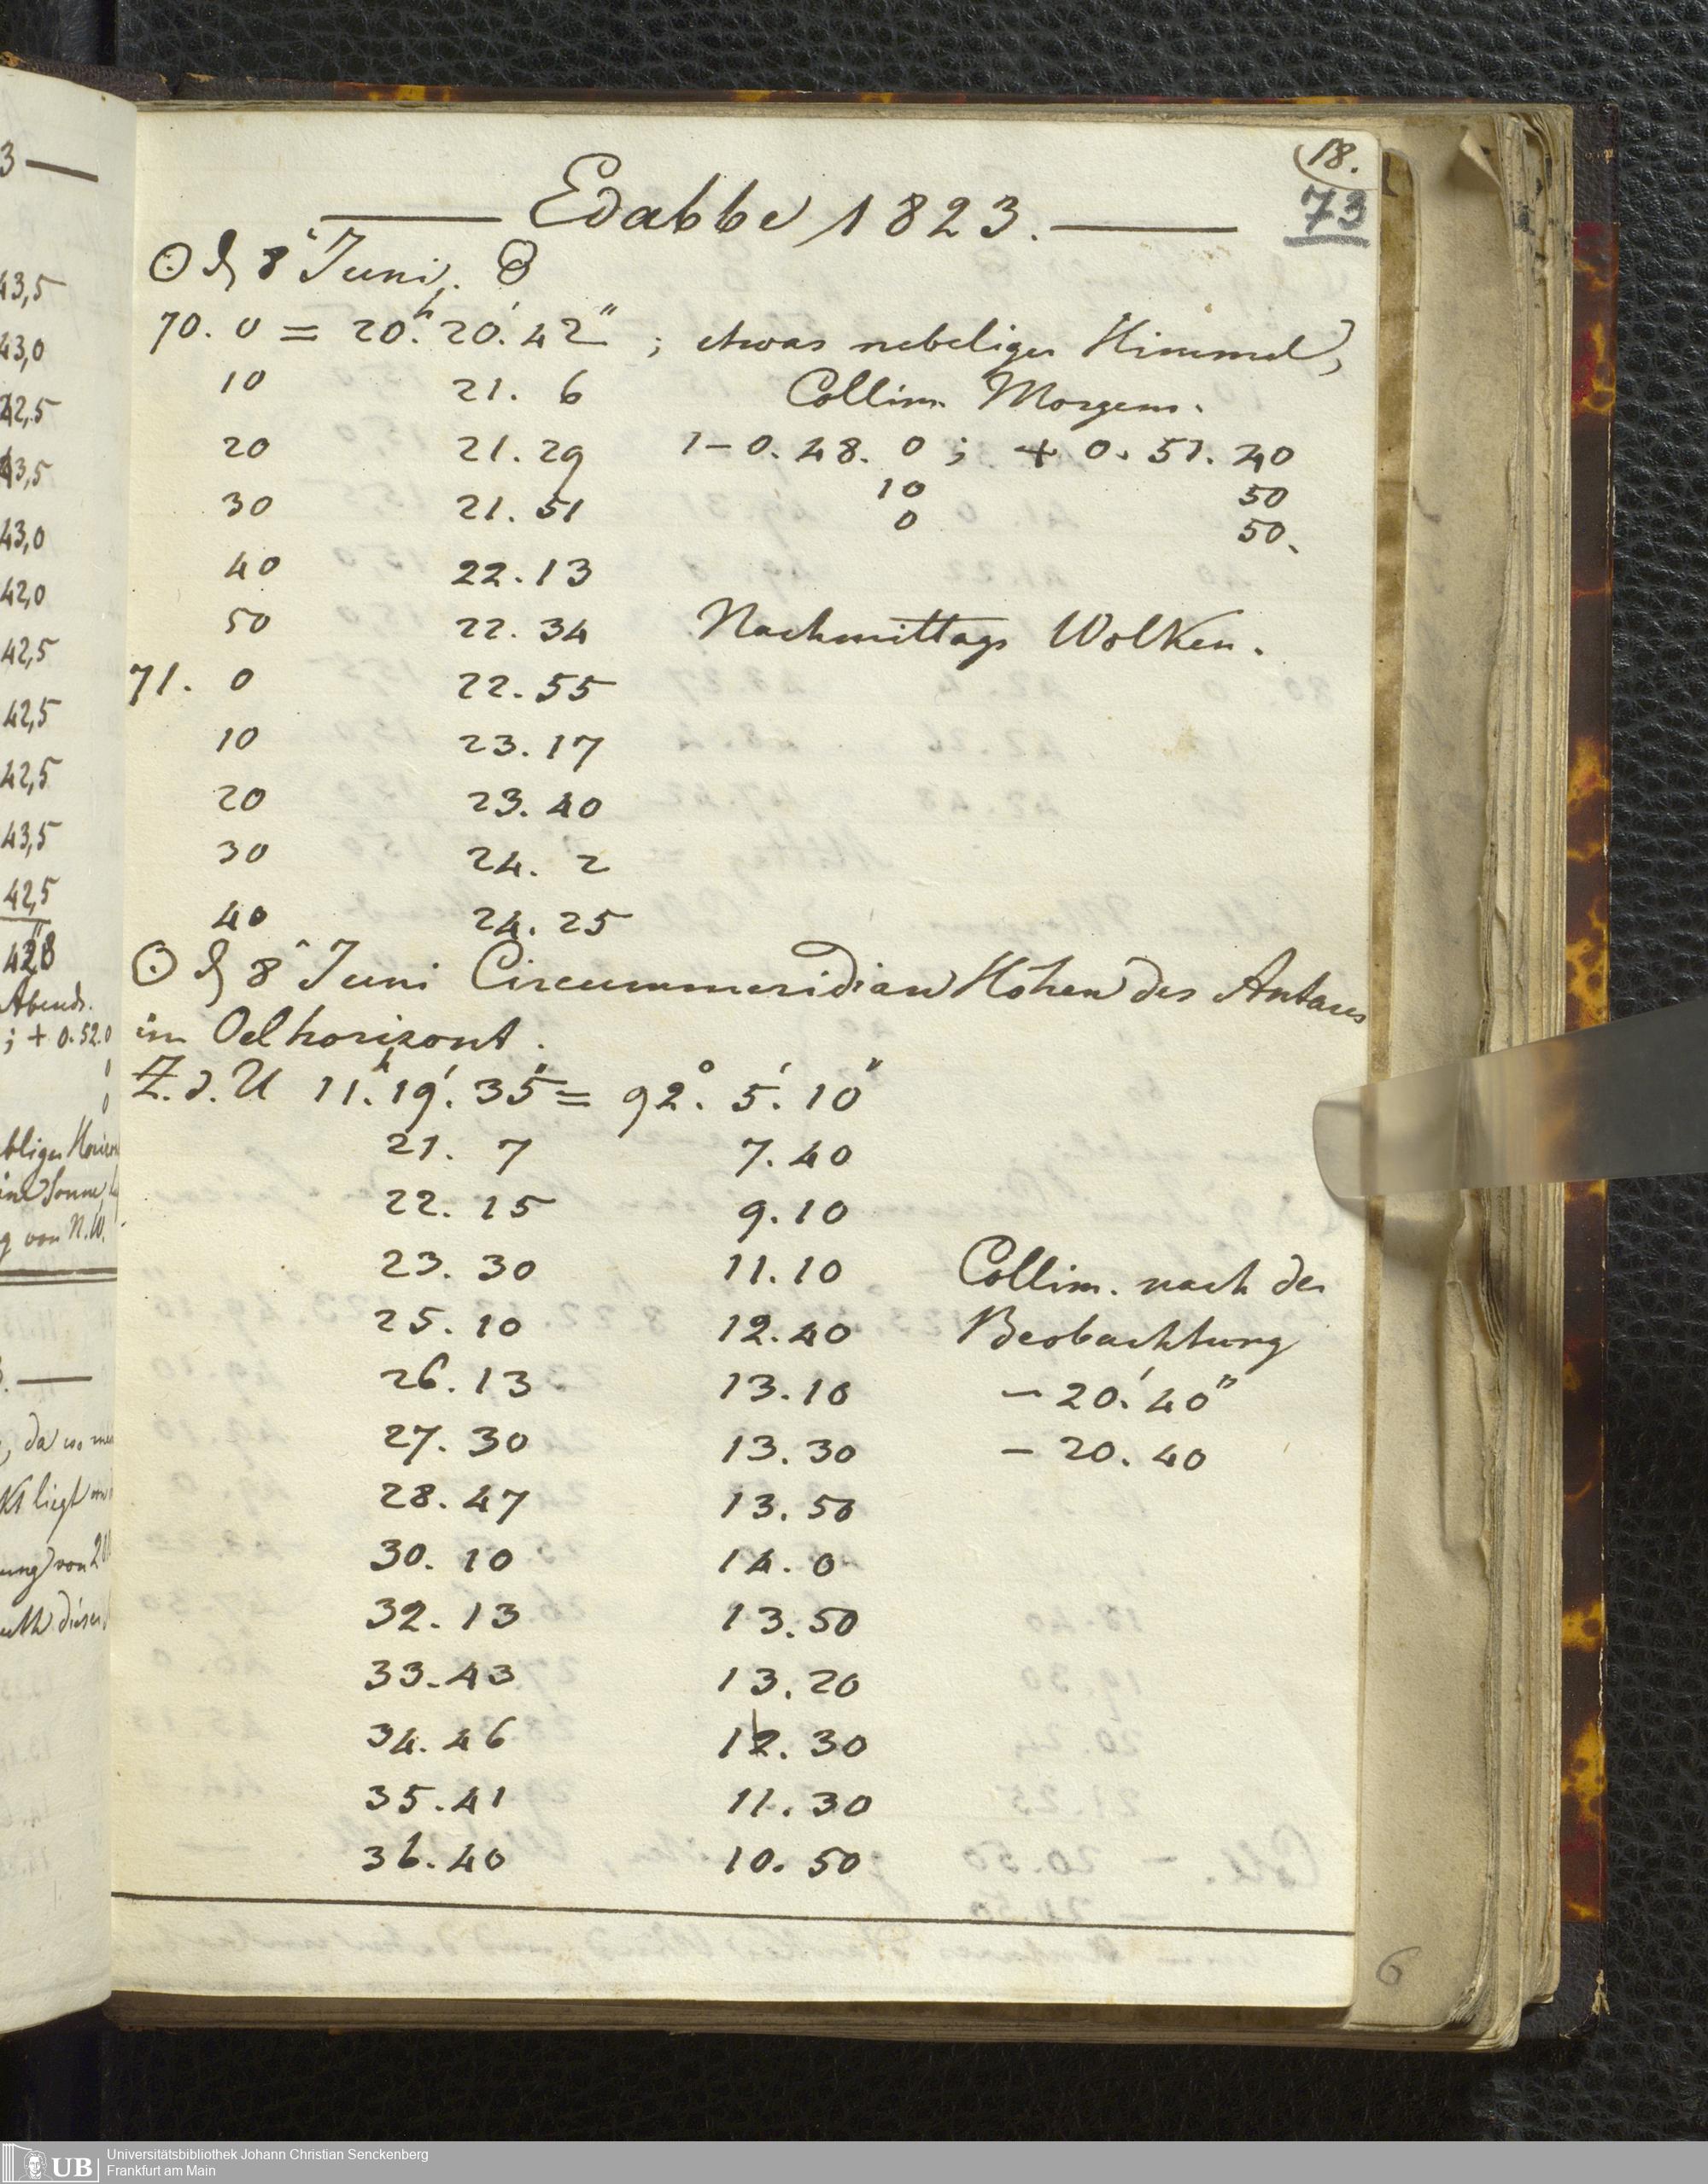 18.
73
Edabbe 1823.
☉ d 8 Juni.
70. 0 = 20.h 20.' 42" ; etwas nebeliger Himmel,
10 21. 6 Collim. Morgens.
20 21. 29 1 - 0. 48. 0 ; + 0. 51. 40
10 50
30 21. 51 0 50.
40 22. 13
50 22. 34 Nachmittags Wolken.
71. 0 22. 55
10 23. 17
20 23. 40
30 24. 2
40 24. 25
☉ d 8 Juni Circummeridian Höhen des Antares
im Oelhorizont.
Z. d. U 11.h 19.' 35" = 92.° 5.' 10"
21. 7 7. 40
22. 15 9. 10
23. 30 11. 10 Collim. nach der
25. 10 12. 40 Beobachtung
26. 13 13. 10 - 20.' 40"
27. 30 13. 30 - 20. 40
28. 47 13. 50
30. 10 14. 0
32. 13 13. 50
33. 43 13. 20
34. 46 12. 30
35. 41 11. 30
36. 40 10. 50
6
3
43,5
43,0
42,5
43,5
43,0
42,0
42,5
42,5
42,5
43,5
42,5
Abends.
; + 0. 52. 0
von N.W.
UB Universitätsbibliothek Johann Christian Senckenberg
Frankfurt am Main